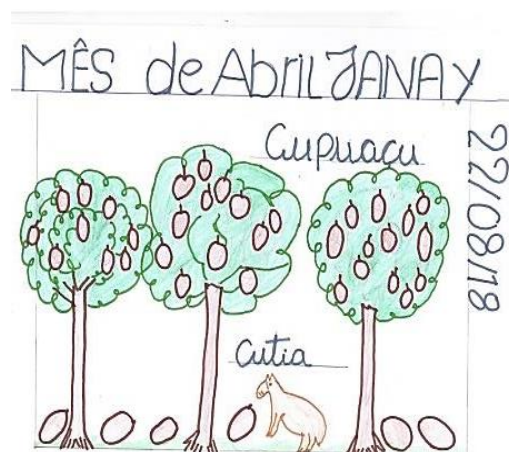 MÊS de Abril JANAY
Cupuaçu
22/08/18
Cutia